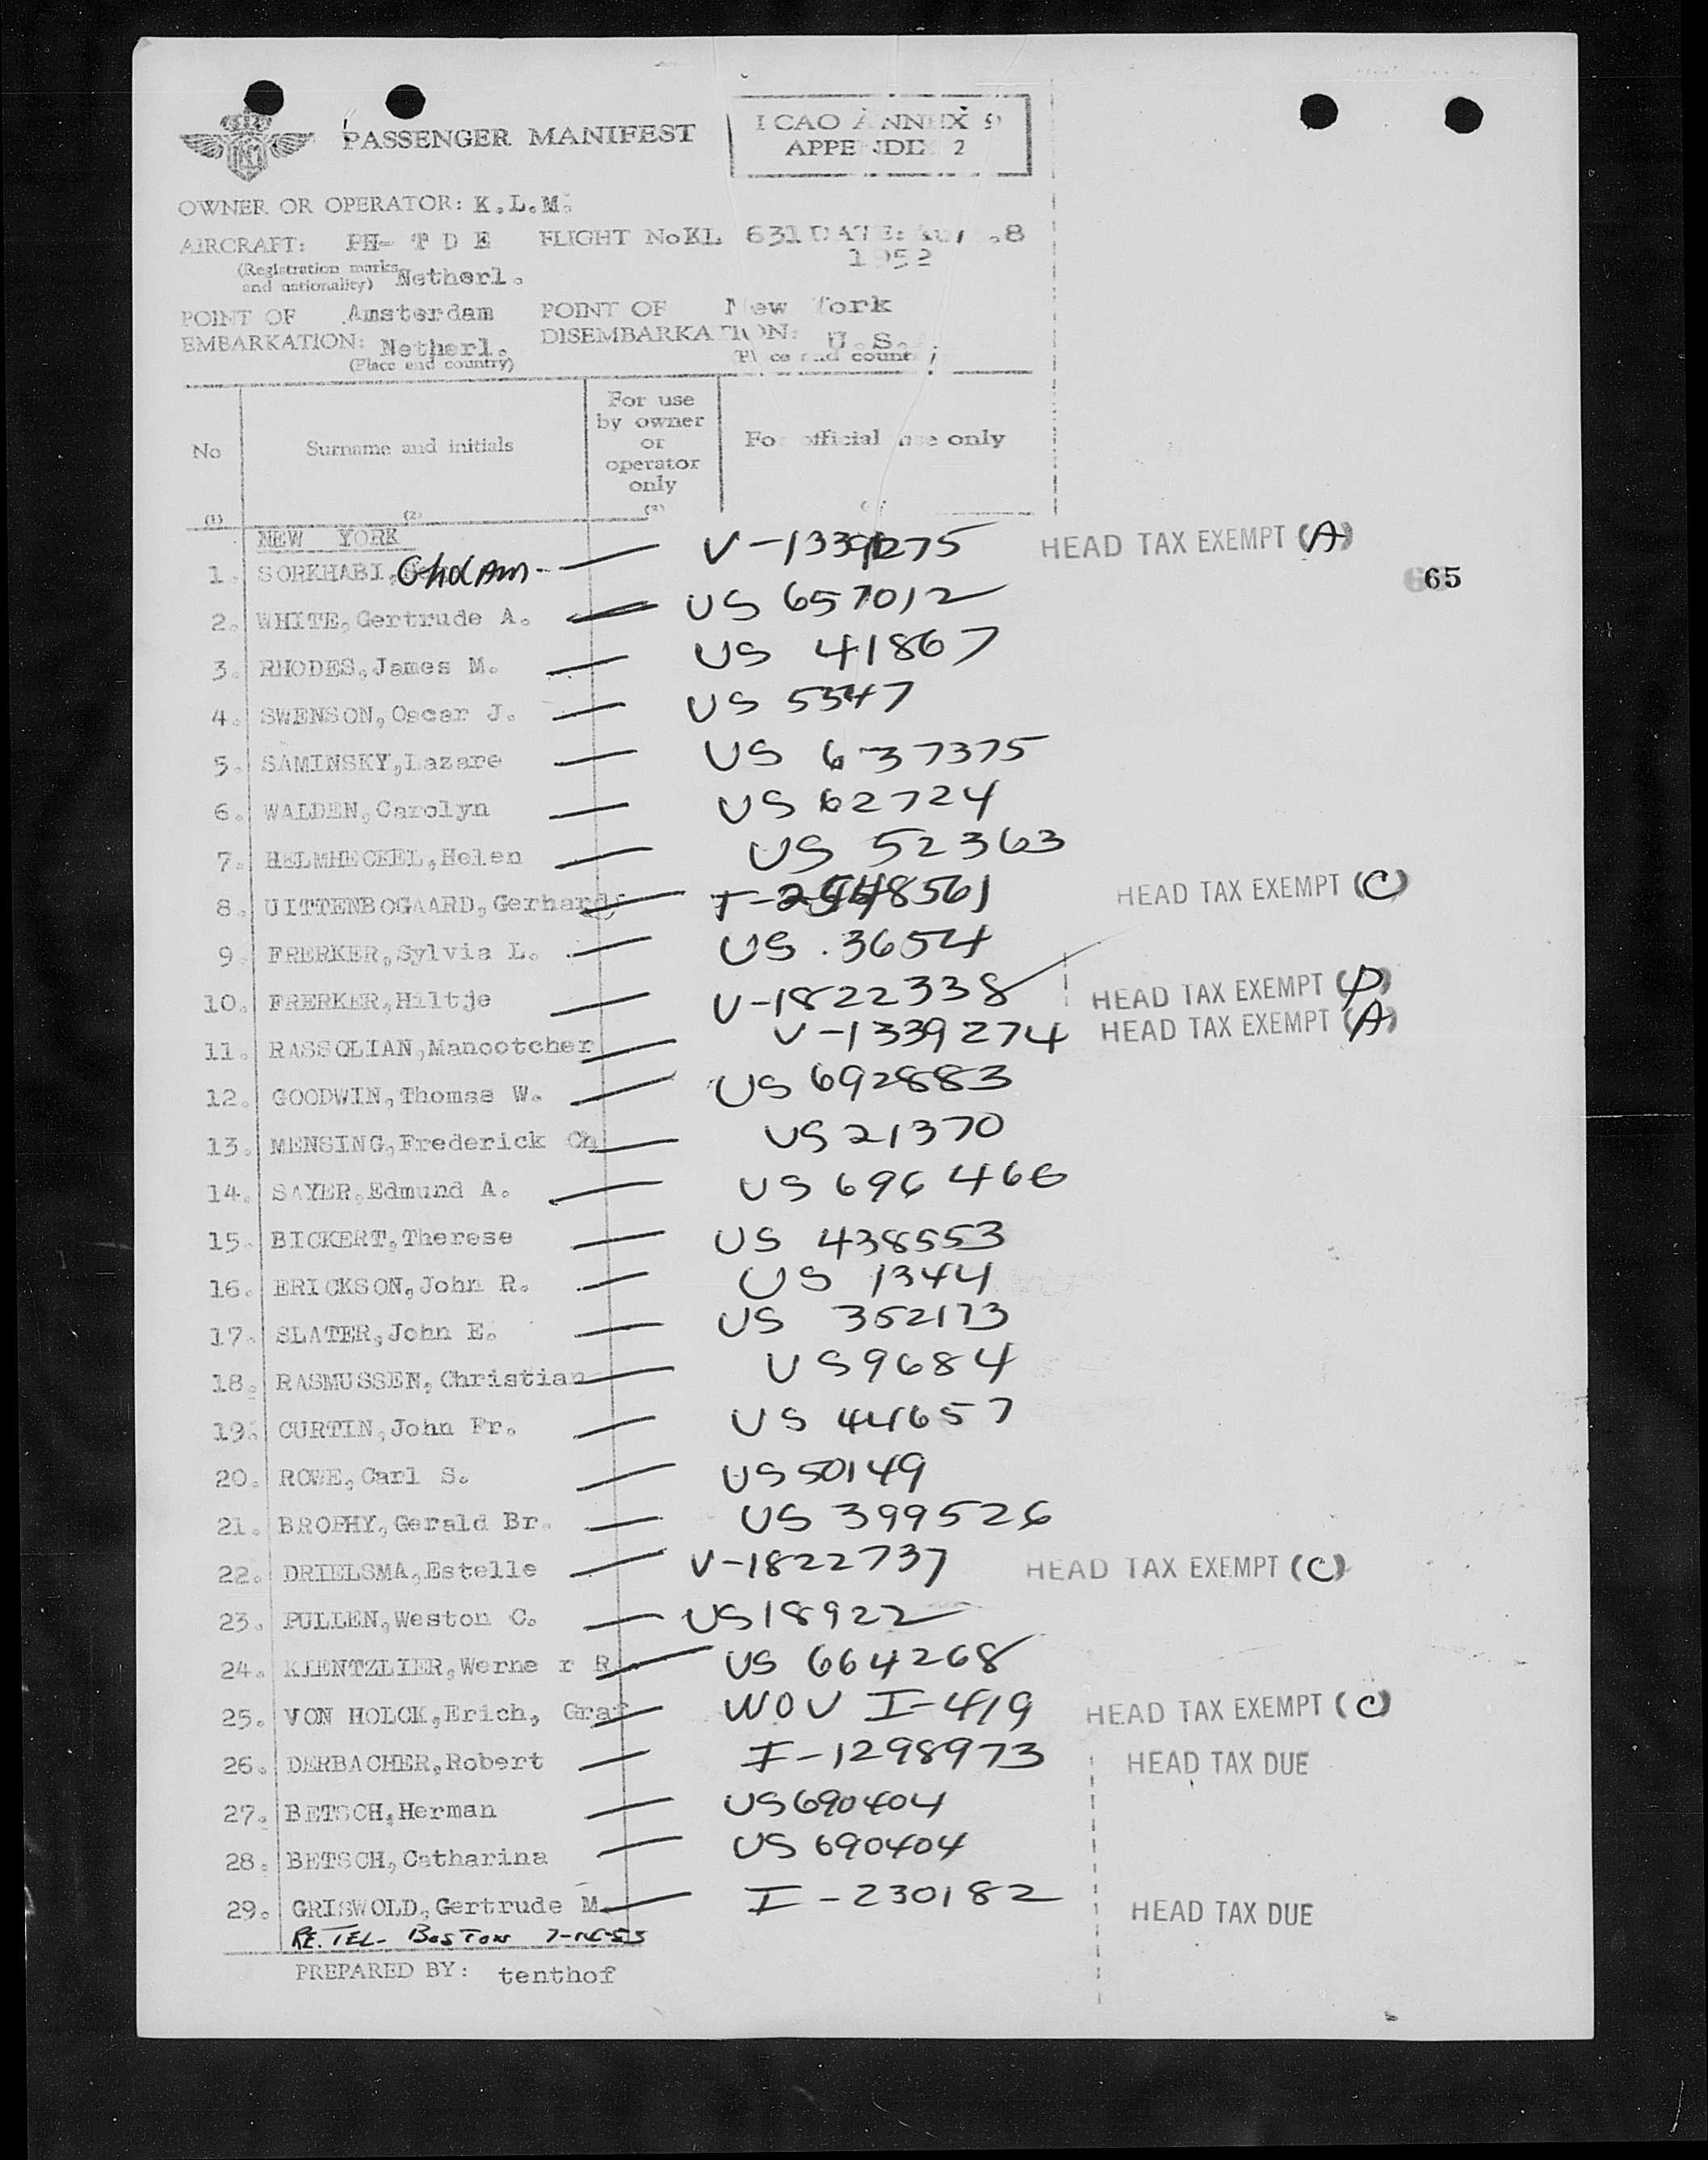 PASSENGER MANIFEST
ICAO ANNEX 9
APPENDIX 2
OWNER OR OPERATOR: K.L.M.
AIRCRAFT: PH- T D E FLIGHT No KL 631 DATE: 8
(Registration marks and nationality) Netherl. 1952
POINT OF EMBARKATION: Amsterdam Netherl. POINT OF DISEMBARKATION: New York U.S.
(Place and country) (Place and country)
No Surname and initials For use by owner or operator only For official use only
(1) (2)
NEW YORK
1. SORKHABI, Gholam- V-1339275 HEAD TAX EXEMPT (A)
65
2. WHITE, Gertrude A. US 657012
3. RHODES, James M. US 41867
4. SWENSON, Oscar J. US 5347
5. SAMINSKY, Lazare US 637375
6. WALDEN, Carolyn US 62724
7. HELMHECKEL, Helen US 52363
8. UITTENBOGAARD, Gerhard HEAD TAX EXEMPT (C)
9. FRERKER, Sylvia L. US 3654
10. FRERKER, Hiltje V-1822338 HEAD TAX EXEMPT (D)
11. RASSOLIAN, Manootcher V-1339274 HEAD TAX EXEMPT (A)
12. GOODWIN, Thomas W. US 692883
13. MENSING, Frederick Ch US 21370
14. SAYER, Edmund A. US 696466
15. BICKERT, Therese US 438553
16. ERICKSON, John R. US 1344
17. SLATER, John E. US 352173
18. RASMUSSEN, Christian US 9684
19. CURTIN, John Fr. US 44657
20. ROWE, Carl S. US 50149
21. BROPHY, Gerald Br. US 399526
22. DRIELSMA, Estelle V-1822737 HEAD TAX EXEMPT (C)
23. PULLEN, Weston C. US 18922
24. KIENTZLIER, Werne r R US 664268
25. VON HOLCK, Erich, Graf WOV I-419 HEAD TAX EXEMPT (C)
26. DERBACHER, Robert I-1298973 HEAD TAX DUE
27. BETSCH, Herman US 690404
28. BETSCH, Catharina US 690404
29. GRISWOLD, Gertrude M. I-230182 HEAD TAX DUE
RE. TEL- BOSTON
PREPARED BY: tenthof